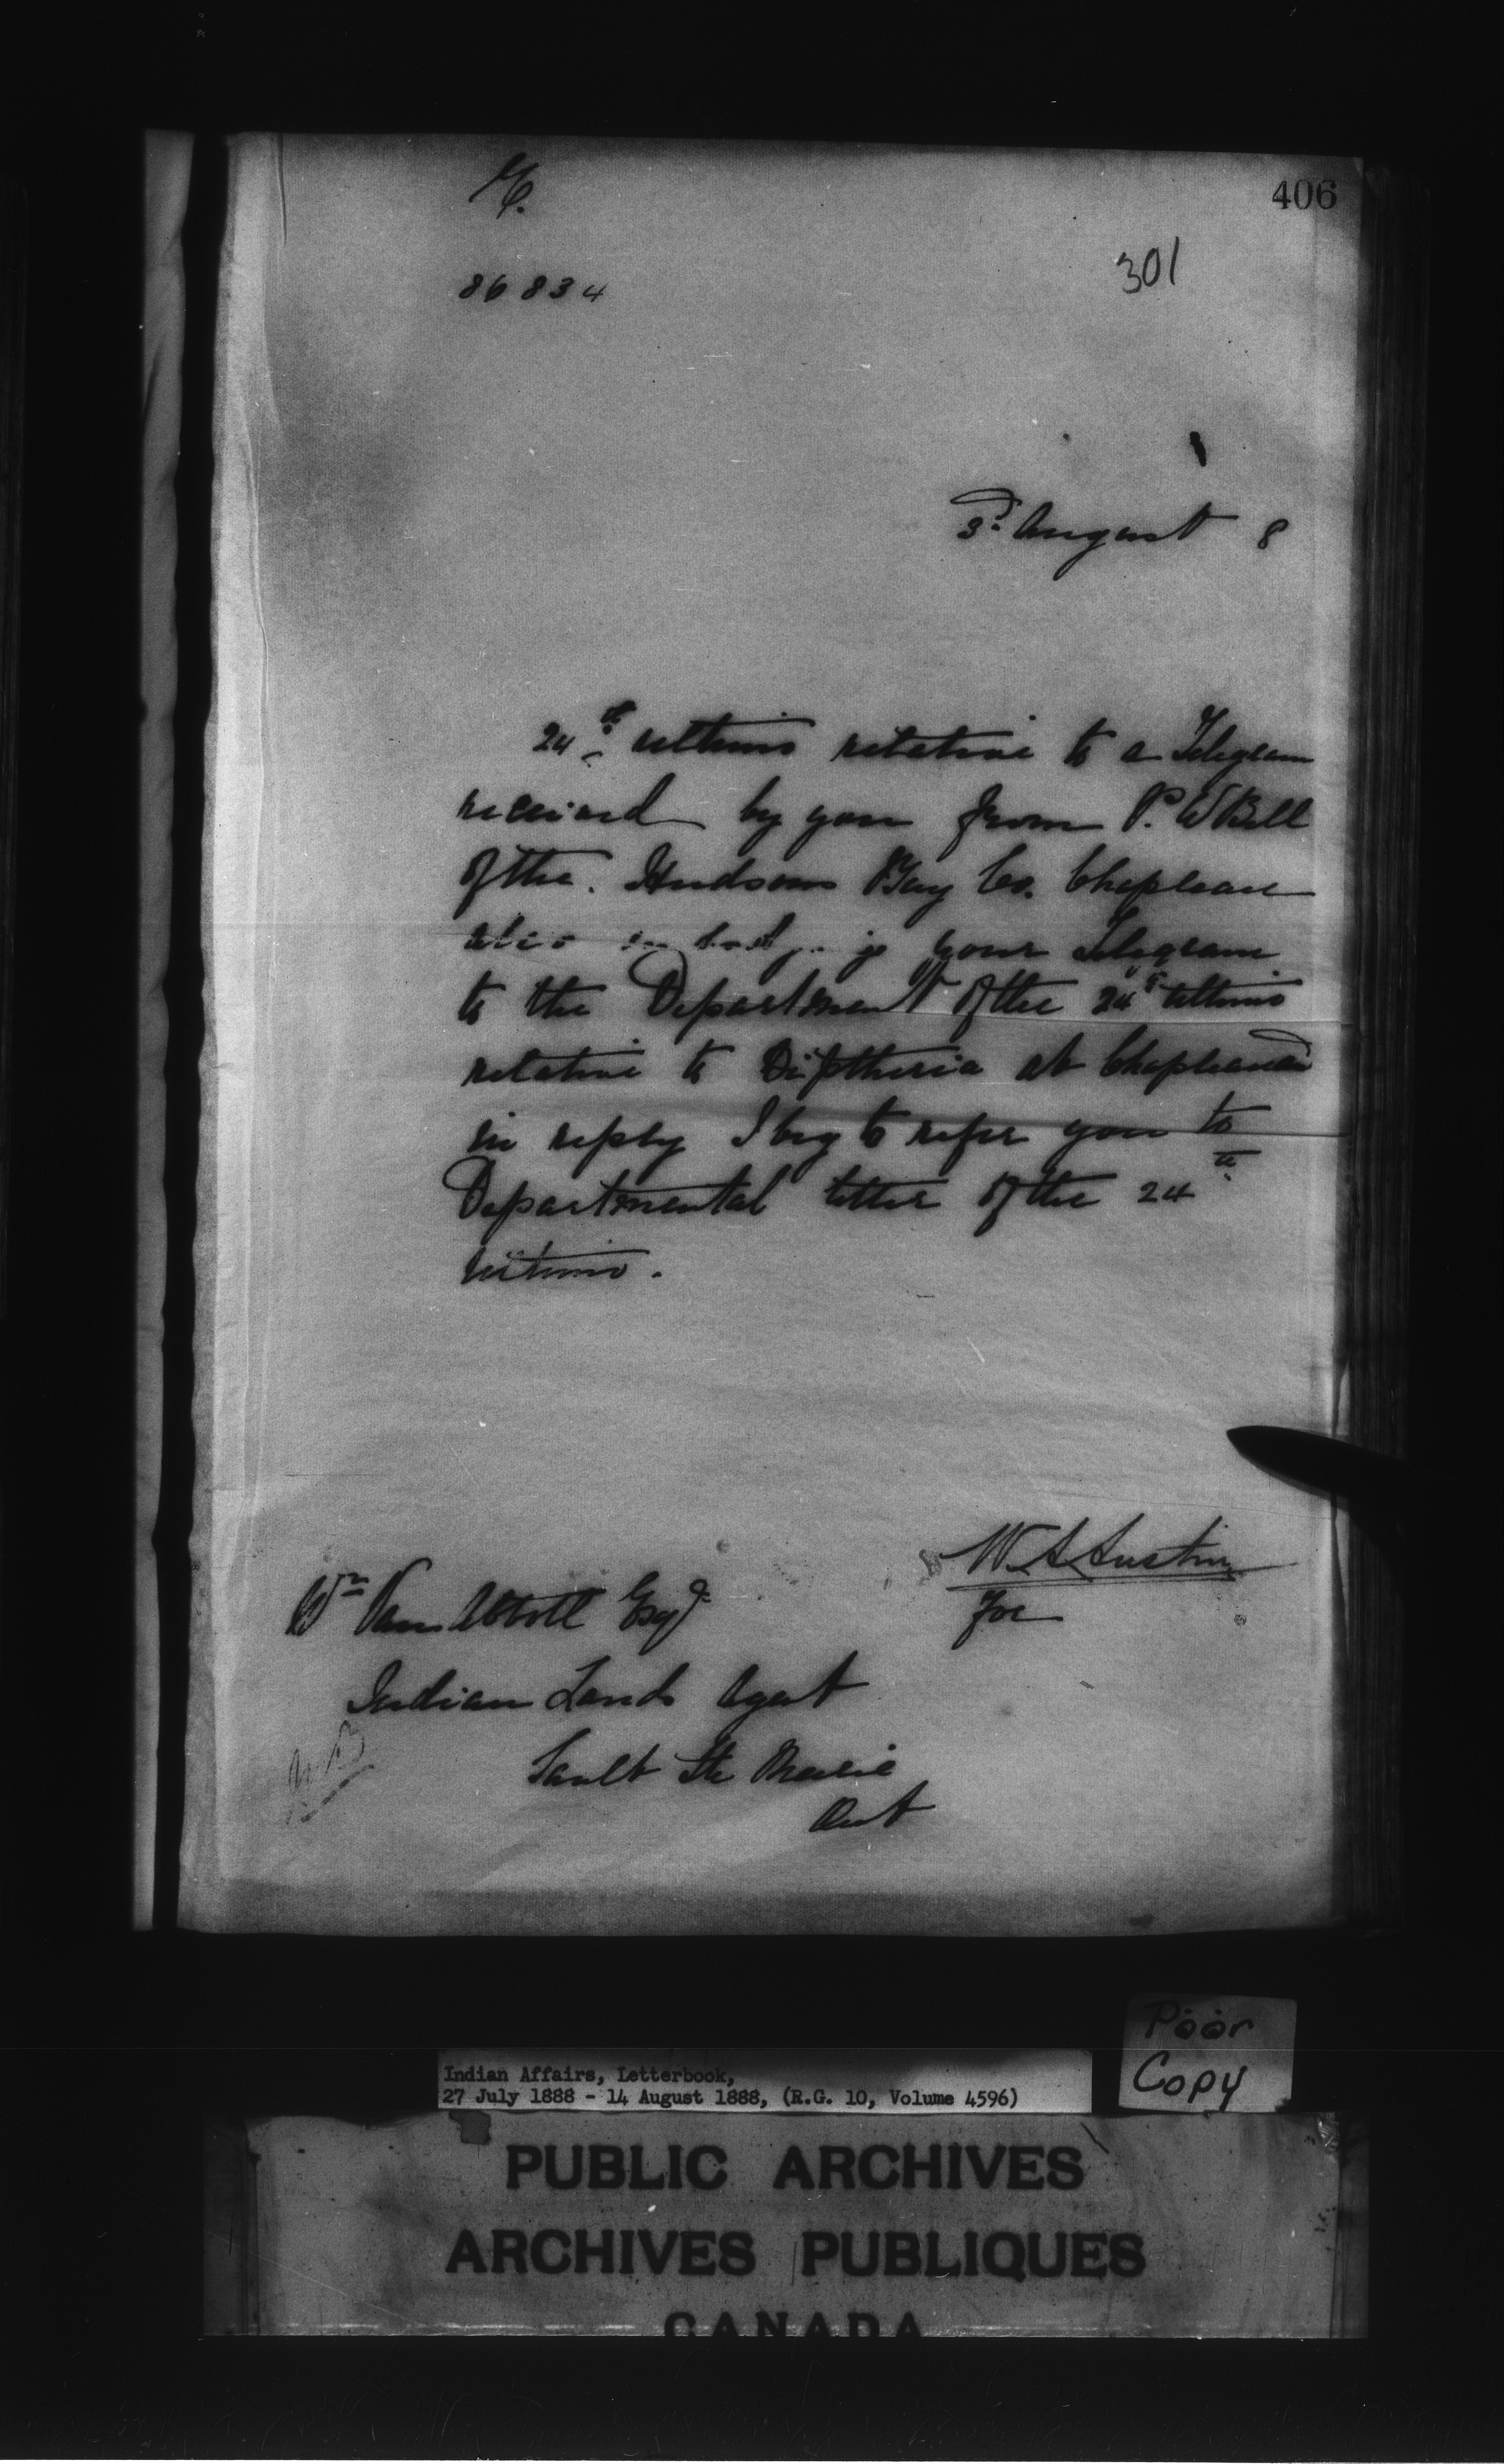 406
301
86834
3d August 8
24th ultimo relative to a Telegram
received by you from P. W Bell
of the Hudsons Bay Co. Chapleau
also your Telegram
to the Department of the 24th ultimo
relative to Diptheria at Chapleau
in reply I beg to refer you to
Departmental letter of the 24th
ultimo.
W. A Austin
For
Wm Van Abbott Esqr
Indian Lands Agent
Sault Ste Marie
Ont
Poor
Copy
Indian Affairs, Letterbook,
27 July 1888 - 14 August 1888, (R.G. 10, Volume 4596)
PUBLIC ARCHIVES
ARCHIVES PUBLIQUES
CANADA